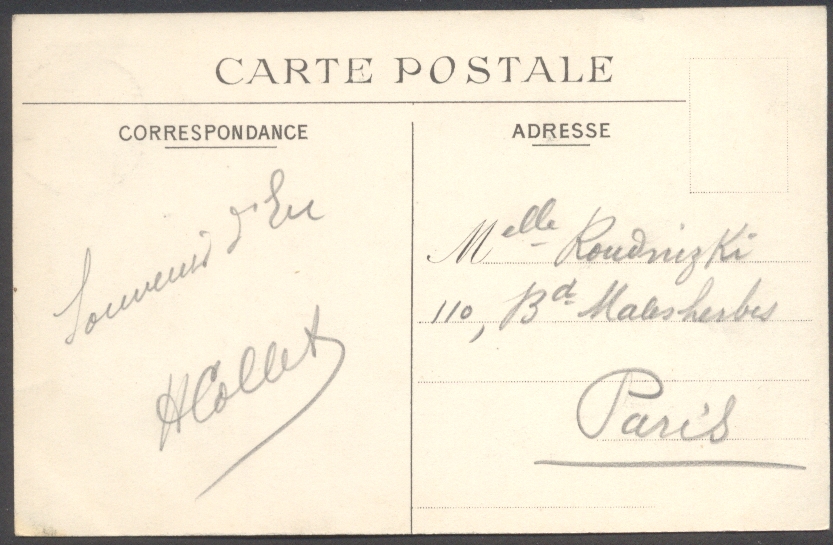 CARTE POSTALE
CORRESPONDANCE
ADRESSE
Souvenir d'Eu
HCollet
Melle Roudnizki
110, Bd Malesherbes
Paris